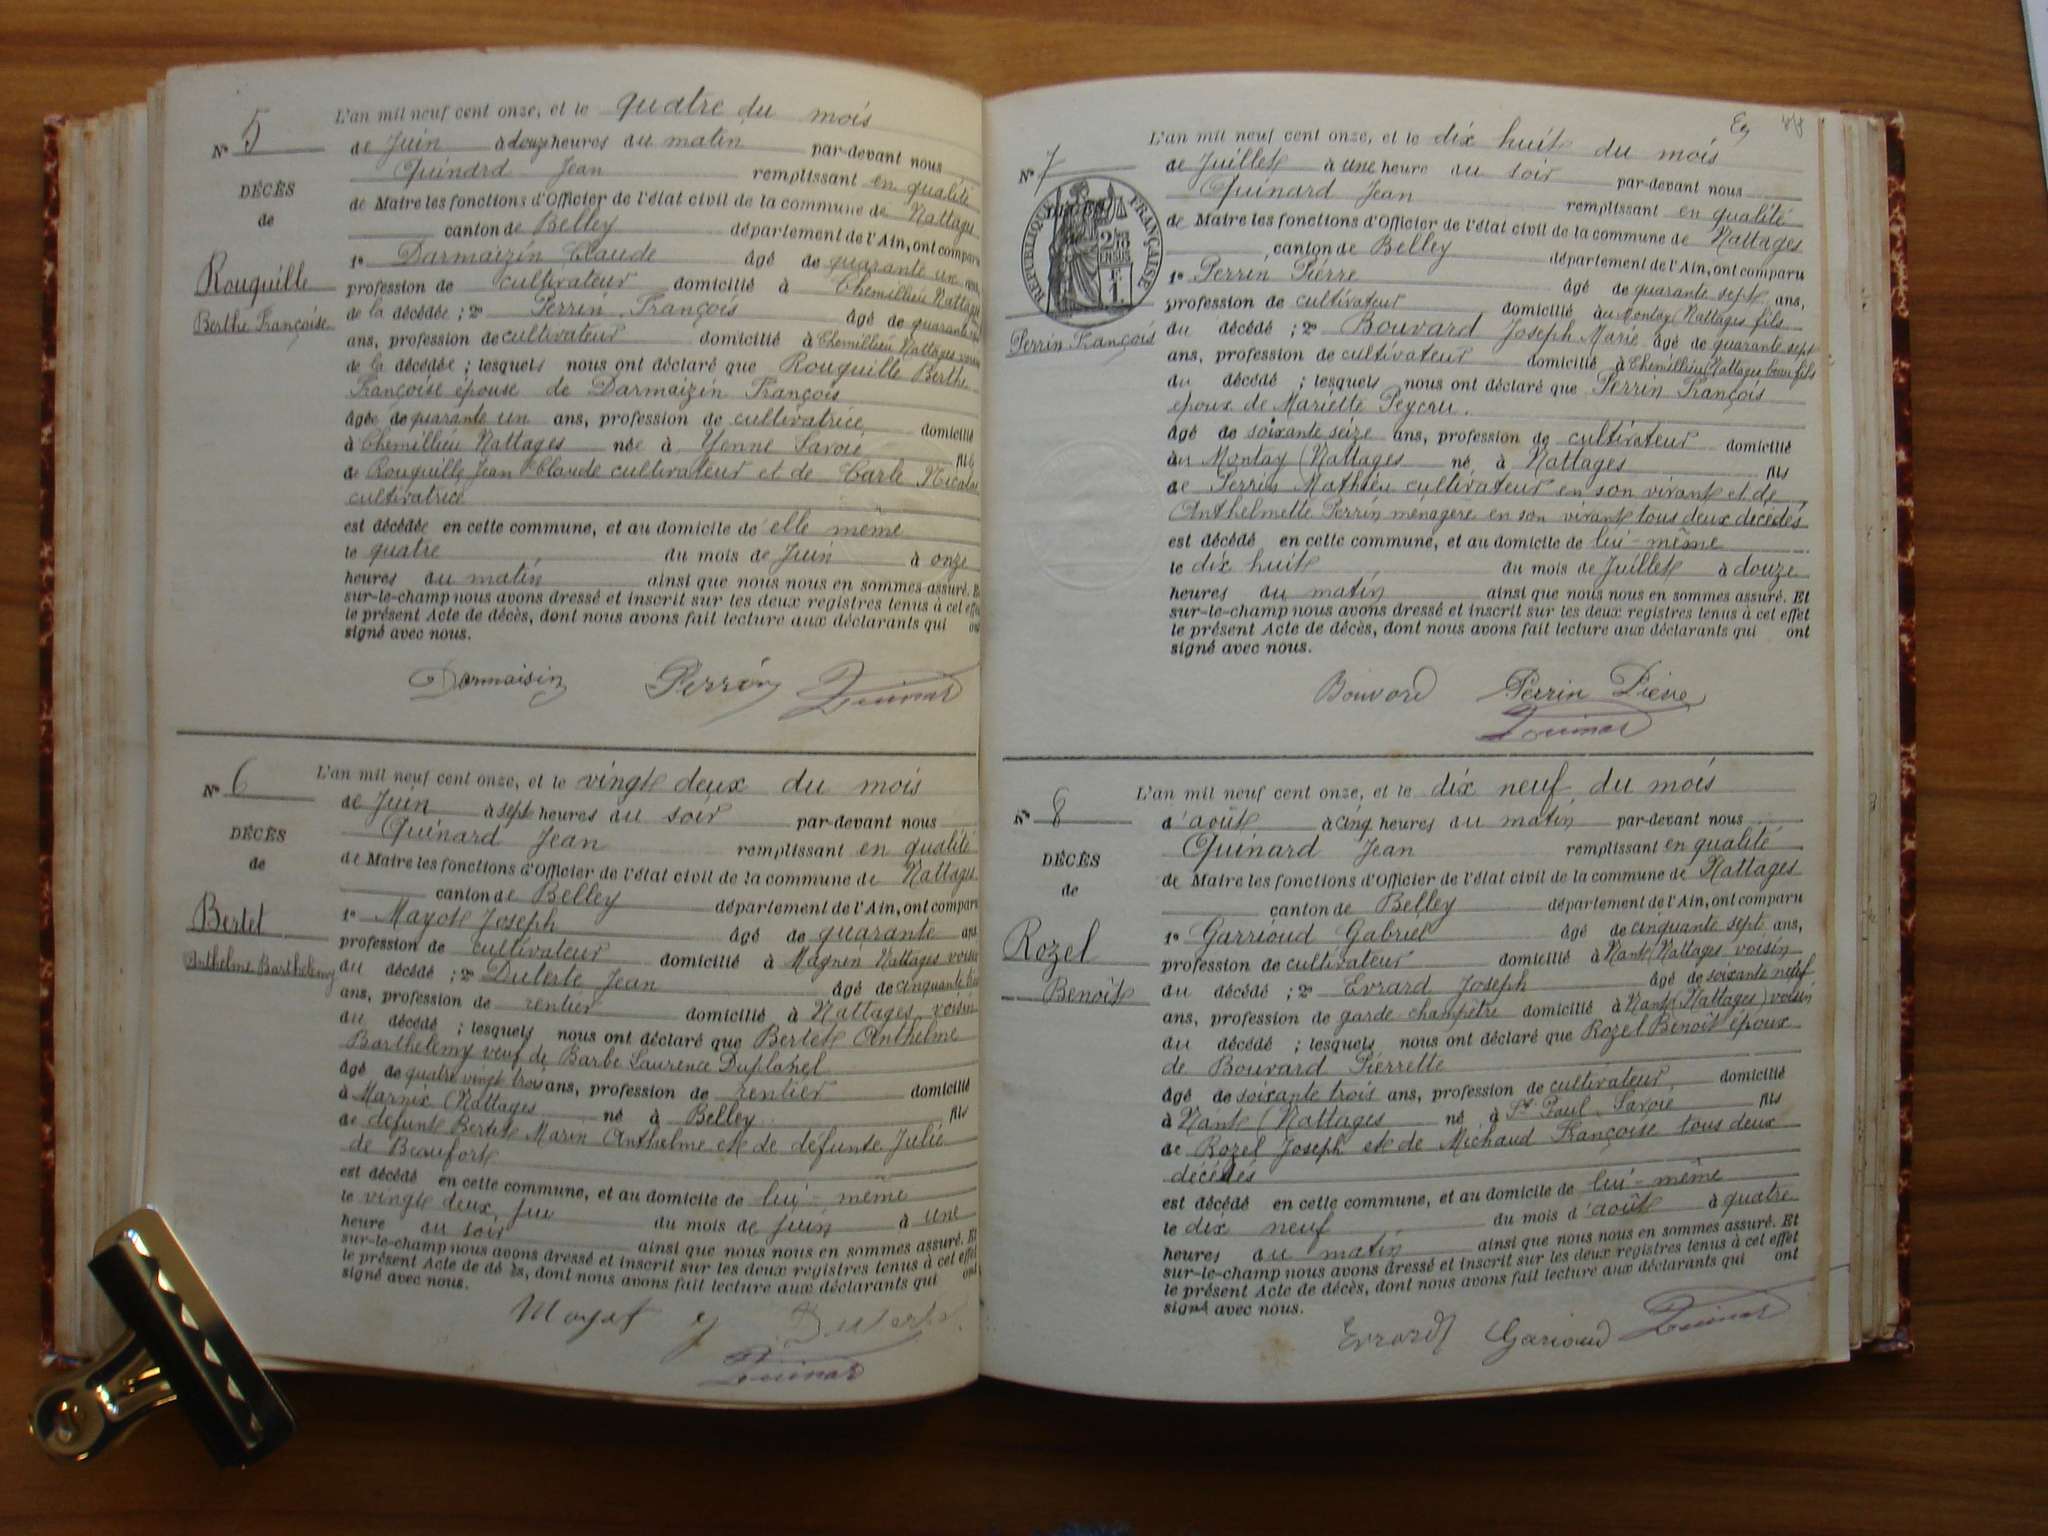 N° 5
DÉCÈS
de
Rouquille
Berthe Françoise
L'an mil neuf cent onze, et le quatre du mois
de Juin à douze heures du matin par-devant nous
Quinard Jean remplissant en qualité
de Maire les fonctions d'Officier de l'état civil de la commune de Nattages
canton de Belley département de l'Ain, ont comparu
1° Darmaizin Claude âgé de quarante un ans,
profession de cultivateur domicilié à Chemillieu Nattages
de la décédée ; 2° Perrin François âgé de quarante
ans, profession de cultivateur domicilié à Chemillieu Nattages voisin
de la décédée ; lesquels nous ont déclaré que Rouquille Berthe
Françoise épouse de Darmaizin François
âgée de quarante un ans, profession de cultivatrice domicilié
à Chemillieu Nattages née à Yenne Savoie fil
de Rouquille Jean Claude cultivateur et de Carle
cultivatrice
est décédée en cette commune, et au domicile de elle même
le quatre du mois de Juin à onze
heures du matin ainsi que nous nous en sommes assuré. Et
sur-le-champ nous avons dressé et inscrit sur les deux registres tenus à cet effet
le présent Acte de décès, dont nous avons fait lecture aux déclarants qui ont
signé avec nous.
Darmaisin Perrin Quinard
N° 6
DÉCÈS
de
Bertet
Anthelme Barthelemy
L'an mil neuf cent onze, et le vingt deux du mois
de Juin à sept heures du soir par-devant nous
Quinard Jean remplissant en qualité
de Maire les fonctions d'Officier de l'état civil de la commune de Nattages
canton de Belley département de l'Ain, ont comparu
1° Mayot Joseph âgé de quarante ans
profession de cultivateur domicilié à Magnin Nattages voisin
du décédé ; 2° Duterte Jean âgé de cinquante
ans, profession de rentier domicilié à Nattages voisin
du décédé ; lesquels nous ont déclaré que Bertet Anthelme
Barthelemy veuf de Barbe Laurence Duplatel
âgé de quatre vingt trois ans, profession de rentier domicilié
à Marnix (Nattages né à Belley fils
de défunt Bertet Marin Anthelme et de defunte Julie
de Beaufort
est décédé en cette commune, et au domicile de lui-même
le vingt deux Jui du mois de Juin à une
heure du soir ainsi que nous nous en sommes assuré. Et
sur-le-champ nous avons dressé et inscrit sur les deux registres tenus à cet effet
le présent Acte de dé ès, dont nous avons fait lecture aux déclarants qui ont
signé avec nous.
Mayot Duterte
Quinard
N° 7
RÉPUBLIQUE FRANÇAISE
2/10 EN SUS
Perrin François
L'an mil neuf cent onze, et le dix huit du mois
de Juillet à une heure du soir par-devant nous
Quinard Jean remplissant en qualité
de Maire les fonctions d'Officier de l'état civil de la commune de Nattages
canton de Belley département de l'Ain, ont comparu
1° Perrin Pierre âgé de quarante sept ans,
profession de cultivateur domicilié au Montay (Nattages fils
du décédé ; 2° Bouvard Joseph Marie âgé de quarante sept
ans, profession de cultivateur domicilié à Chemillieu (Nattages beau fils
du décédé ; lesquels nous ont déclaré que Perrin François
époux de Mariette Peycru.
âgé de soixante seize ans, profession de cultivateur domicilié
au Montay (Nattages né à Nattages fils
de Perrin Mathieu cultivateur en son vivant et de
Anthelmette Perrin ménagère en son vivant tous deux décédés
est décédé en cette commune, et au domicile de lui-même
le dix huit du mois de Juillet à douze
heures du matin ainsi que nous nous en sommes assuré. Et
sur-le-champ nous avons dressé et inscrit sur les deux registres tenus à cet effet
le présent Acte de décès, dont nous avons fait lecture aux déclarants qui ont
signé avec nous.
Bouvard Perrin Pierre
Quinard
N° 8
DÉCÈS
de
Rozel
Benoit
L'an mil neuf cent onze, et le dix neuf du mois
d'août à cinq heures du matin par-devant nous
Quinard Jean remplissant en qualité
de Maire les fonctions d'Officier de l'état civil de la commune de Nattages
canton de Belley département de l'Ain, ont comparu
1° Garrioud Gabriel âgé de cinquante sept ans,
profession de cultivateur domicilié à Nant (Nattages voisin
du décédé ; 2° Evrard Joseph âgé de soixante neuf
ans, profession de garde champêtre domicilié à Nant (Nattages) voisin
du décédé ; lesquels nous ont déclaré que Rozel Benoit époux
de Bouvard Pierrette
âgé de soixante trois ans, profession de cultivateur domicilié
à Nant (Nattages né à St Paul Savoie fils
de Rozel Joseph et de Michaud Françoise tous deux
décédés
est décédé en cette commune, et au domicile de lui-même
le dix neuf du mois d'août à quatre
heures du matin ainsi que nous nous en sommes assuré. Et
sur-le-champ nous avons dressé et inscrit sur les deux registres tenus à cet effet
le présent Acte de décès, dont nous avons fait lecture aux déclarants qui ont
signé avec nous.
Evrard Garioud Quinard